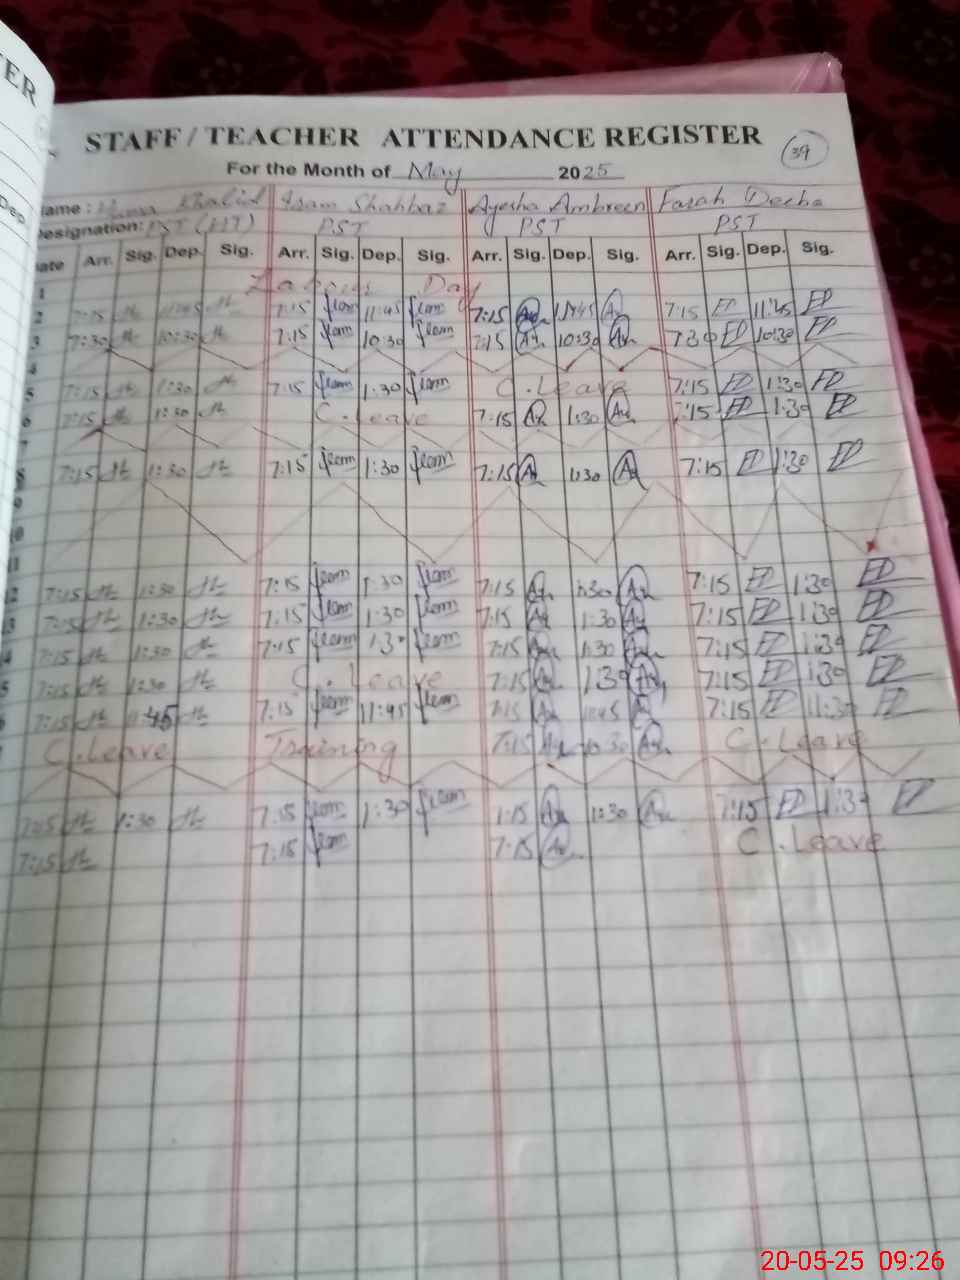 TER
Dep.
STAFF / TEACHER ATTENDANCE REGISTER
39
For the Month of May 2025
ame: Huma Khalid Iram Shahbaz Ayesha Ambreen Farah Deeba
esignation: PST (HT) PST PST PST
ate Arr. Sig. Dep. Sig. Arr. Sig. Dep. Sig. Arr. Sig. Dep. Sig. Arr. Sig. Dep. Sig.
1 Labour Day
2 7:15 11:45 7:15 11:45 7:15 11:45 7:15 FD 11:45 FD
3 7:30 10:30 7:15 10:30 7:15 10:30 7:30 FD 10:30 FD
4
5 7:15 1:30 7:15 1:30 C.Leave 7:15 FD 1:30 FD
6 7:15 1:30 C.Leave 7:15 1:30 7:15 FD 1:30 FD
7
8 7:15 1:30 7:15 1:30 7:15 1:30 7:15 FD 1:30 FD
9
10
11
12 7:15 1:30 7:15 1:30 7:15 1:30 7:15 FD 1:30 FD
3 7:15 1:30 7:15 1:30 7:15 1:30 7:15 FD 1:30 FD
4 7:15 1:30 7:15 1:30 7:15 1:30 7:15 FD 1:30 FD
5 7:15 1:30 C.Leave 7:15 1:30 7:15 FD 1:30 FD
7:15 11:45 7:15 11:45 7:15 11:45 7:15 FD 11:30 FD
C.Leave Training 7:15 10:30 C.Leave
7:15 1:30 7:15 1:30 1:15 1:30 7:15 FD 1:30 FD
7:15 7:15 7:15 C.Leave
20-05-25 09:26